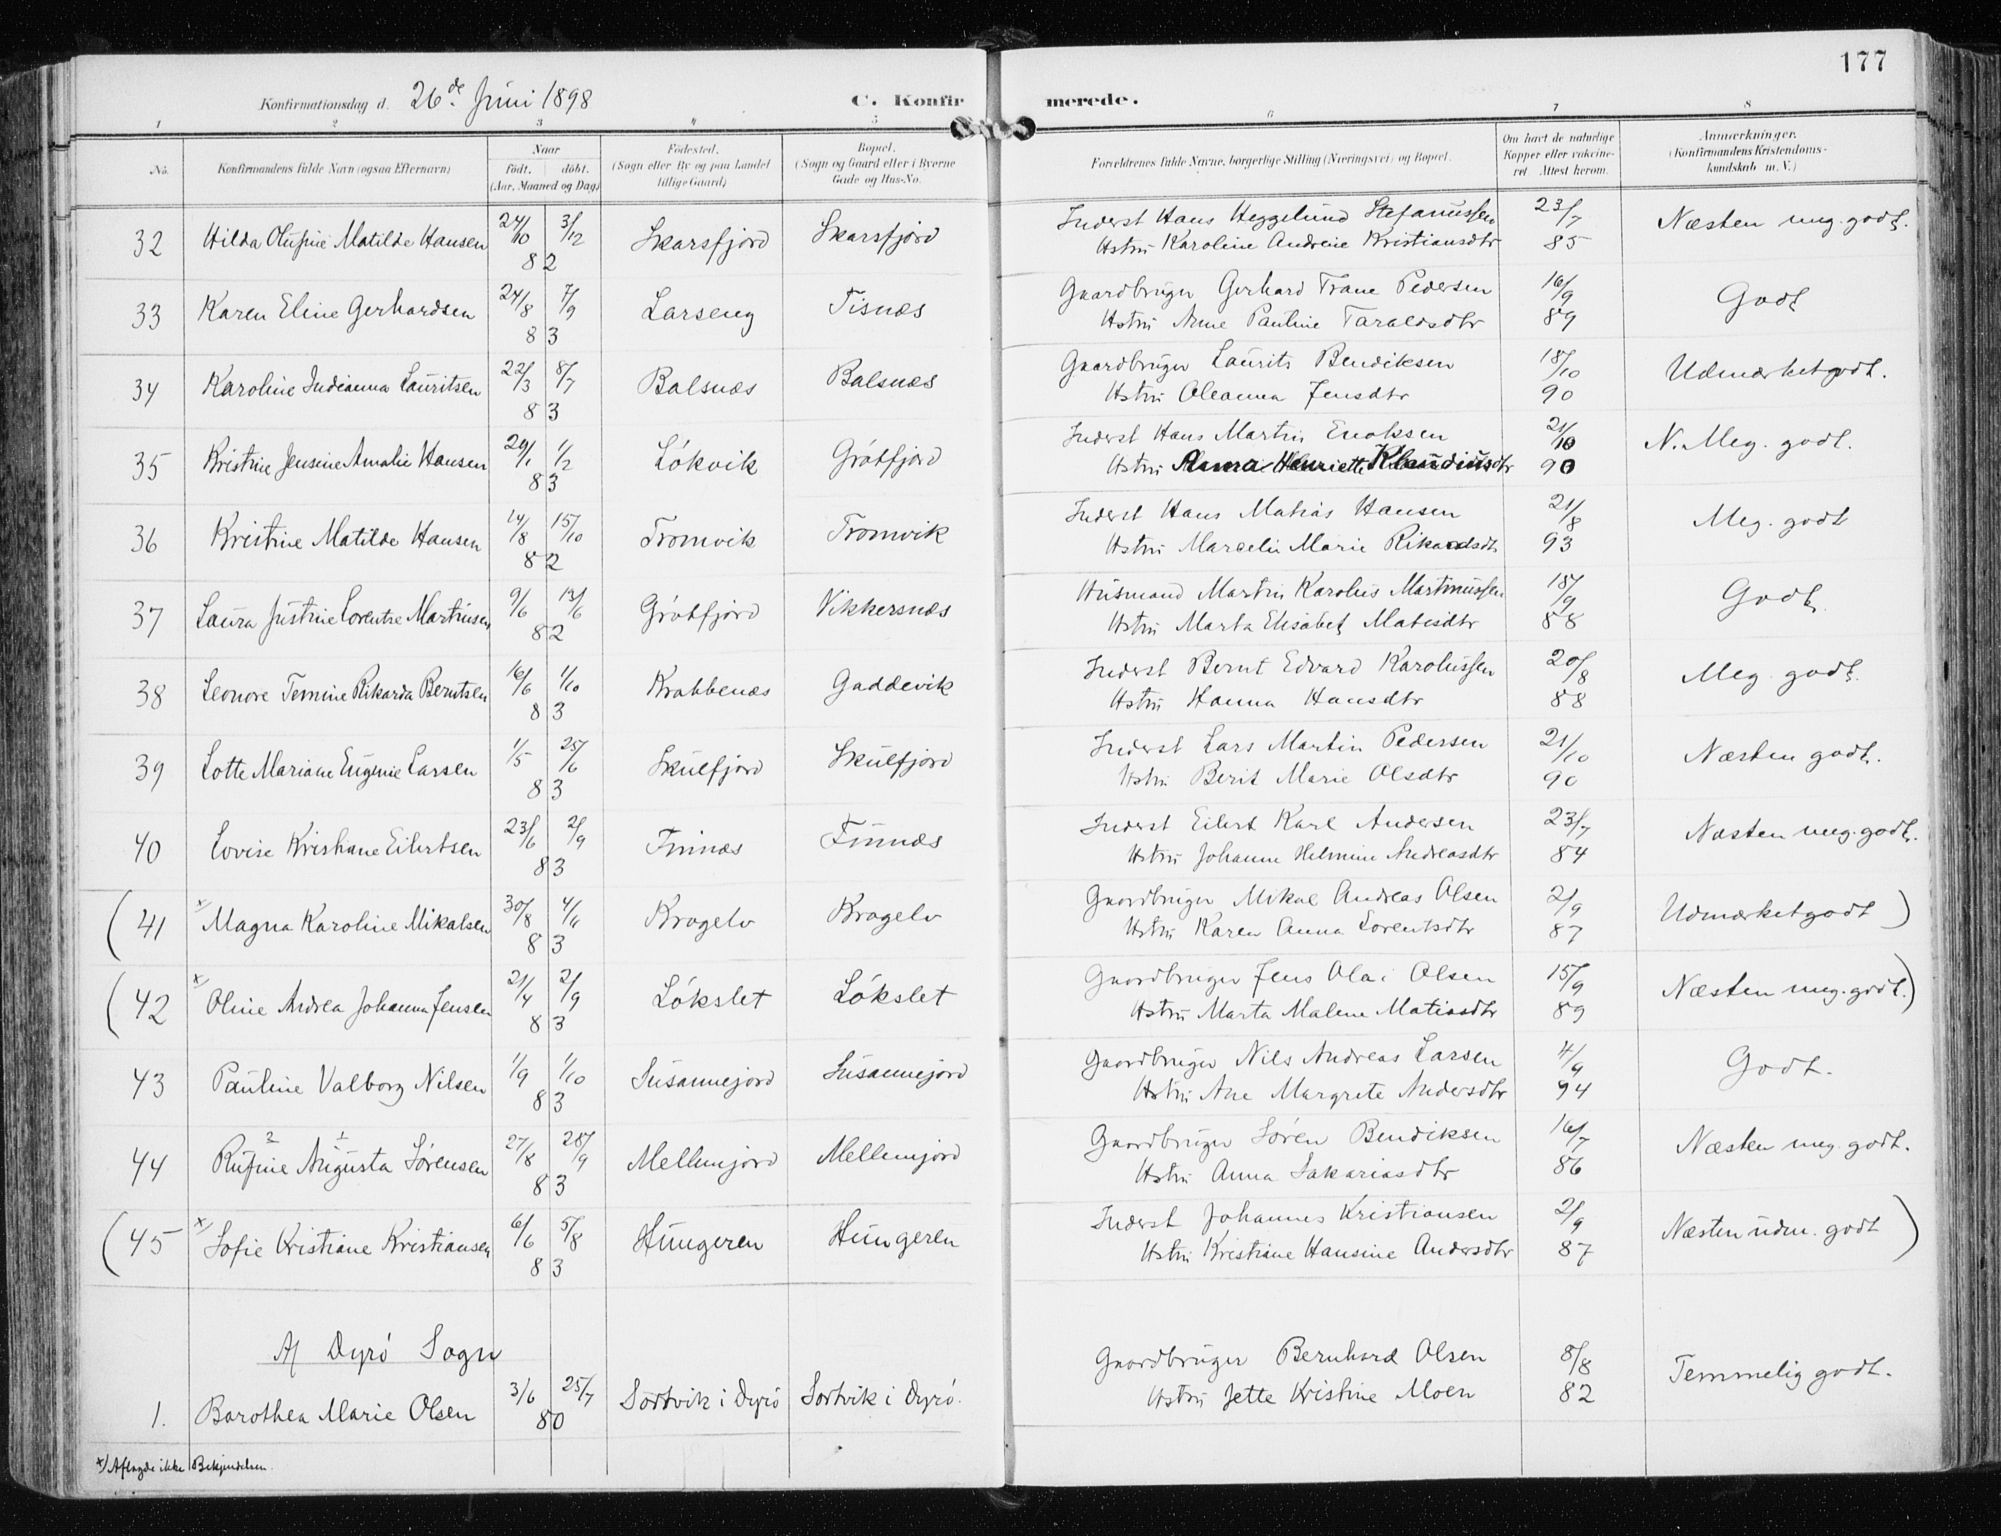 177
Konfirmationsdag d. 26de Juni 1898 C. Konfirmerede.
1 2 3 4 5 6 7 8
No. Konfirmandens fulde Navn (ogsaa Efternavn) Naar födt. döbt. (Aar, Maaned og Dag) Födested. (Sogn eller By og paa Landet tillige Gaard) Bopæl. (Sogn og Gaard eller i Byerne Gade og Hus-No. Forældrenes fulde Navne, borgerlige Stilling (Næringsvei) og Bopæl. Om havt de naturlige Kopper eller vakcineret Attest herom. Anmærkninger. (Konfirmandens Kristendomskundskab m. V.)
32 Hilda Olufine Matilde Hansen 24/10 3/12 82 Skarsfjord Skarsfjord Inderst Hans Heggelund Stefanussen 23/7 85 Næsten meg. godt.
Hstru Karoline Andreie Kristiansdtr
33 Karen Eline Gerhardsen 24/8 7/9 83 Larseng Tisnæs Gaardbruger Gerhard Trane Pedersen 16/9 89 Godt
Hstru Anne Pauline Taraldsdtr
34 Karoline Indianna Lauritsen 22/3 8/7 83 Balsnæs Balsnæs Gaardbruger Laurits Bendiksen 18/10 90 Udmærketgodt.
Hstru Oleanna Jensdtr
35 Kristine Jensine Amalie Hansen 29/1 1/2 83 Lökvik Grötfjord Inderst Hans Martin Enoksen 21/10 90 N. Meg. godt.
Hstru Anna Henriette Klaudiusdtr
36 Kristine Matilde Hansen 14/8 15/10 82 Tromvik Tromvik Inderst Hans Matias Hansen 21/8 93 Meg. godt
Hstru Marcelie Marie Rikardsdtr
37 Laura Justine Lorentse Martinsen 9/6 13/6 82 Grötfjord Vikkersnæs Husmand Martin Karolus Martinussen 18/9 88 Godt.
Hstru Marta Elisabet Matisdtr
38 Leonore Temine Rikarda Berntsen 16/6 1/10 83 Krabbenæs Gaddevik Inderst Bernt Edvard Karolussen 20/8 88 Meg. godt.
Hstru Hanna Hansdtr
39 Lotte Mariane Eugenie Larsen 1/5 25/6 83 Skulfjord Skulfjord Inderst Lars Martin Pedersen 21/10 90 Næsten godt.
Hstru Berit Marie Olsdtr
40 Lovise Kristiane Eilertsen 23/6 2/9 83 Finnæs Finnæs Inderst Eilert Karl Andersen 23/7 84 Næsten meg. godt.
Hstru Johanne Helmine Andreasdtr
(41 x) Magna Karoline Mikalsen 30/8 4/11 83 Kragelv Kragelv Gaardbruger Mikal Andreas Olsen 2/9 87 Udmærketgodt)
Hstru Karen Anna Lorentsdtr
(42 x) Oline Andrea Johanna Jensen 21/4 2/9 83 Lökslet Lökslet Gaardbruger Jens Olai Olsen 15/9 89 Næsten meg. godt.)
Hstru Marta Malene Matiasdtr
43 Pauline Valborg Nilsen 1/9 1/10 83 Susannejord Susannejord Gaardbruger Nils Andreas Larsen 4/9 94 Godt.
Hstru Ane Margrete Andersdtr
44 2 Rufine 1 Augusta Sørensen 27/8 28/9 83 Mellemjord Mellemjord Gaardbruger Sören Bendiksen 16/7 86 Næsten meg. godt.
Hstru Anna Sakariasdtr
(45 x) Sofie Kristiane Kristiansen 6/6 5/8 83 Hungeren Hungeren Inderst Johannes Kristiansen 2/9 87 Næsten udm. godt)
Hstru Kristiane Hansine Andersdtr
Af Dyrö Sogn
1. Barothea Marie Olsen 3/6 25/7 80 Sortvik i Dyrö Sortvik i Dyrö. Gaardbruger Bernhard Olsen 8/8 82 Temmelig godt.
Hstru Jette Kristine Moen
x) Aflagde ikke Bekjendelsen.